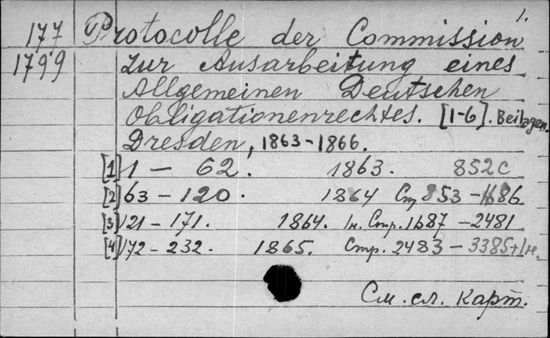 1.
177 Protocolle der Commission
1799 zur Ausarbeitung eines
Allgemeinen Deutschen
Obligationenrechtes. [1-6]. Beilagen.
Dresden, 1863-1866.
[1] 1 – 62. 1863. 852 с
[2] 63 – 120. 1864 Стр 853 – 1686
[3] 121 – 171. 1864. 1н. Стр. 1687 – 2481
[4] 172 – 232. 1865. Стр. 2483 – 3385+1н.
См. сл. карт.